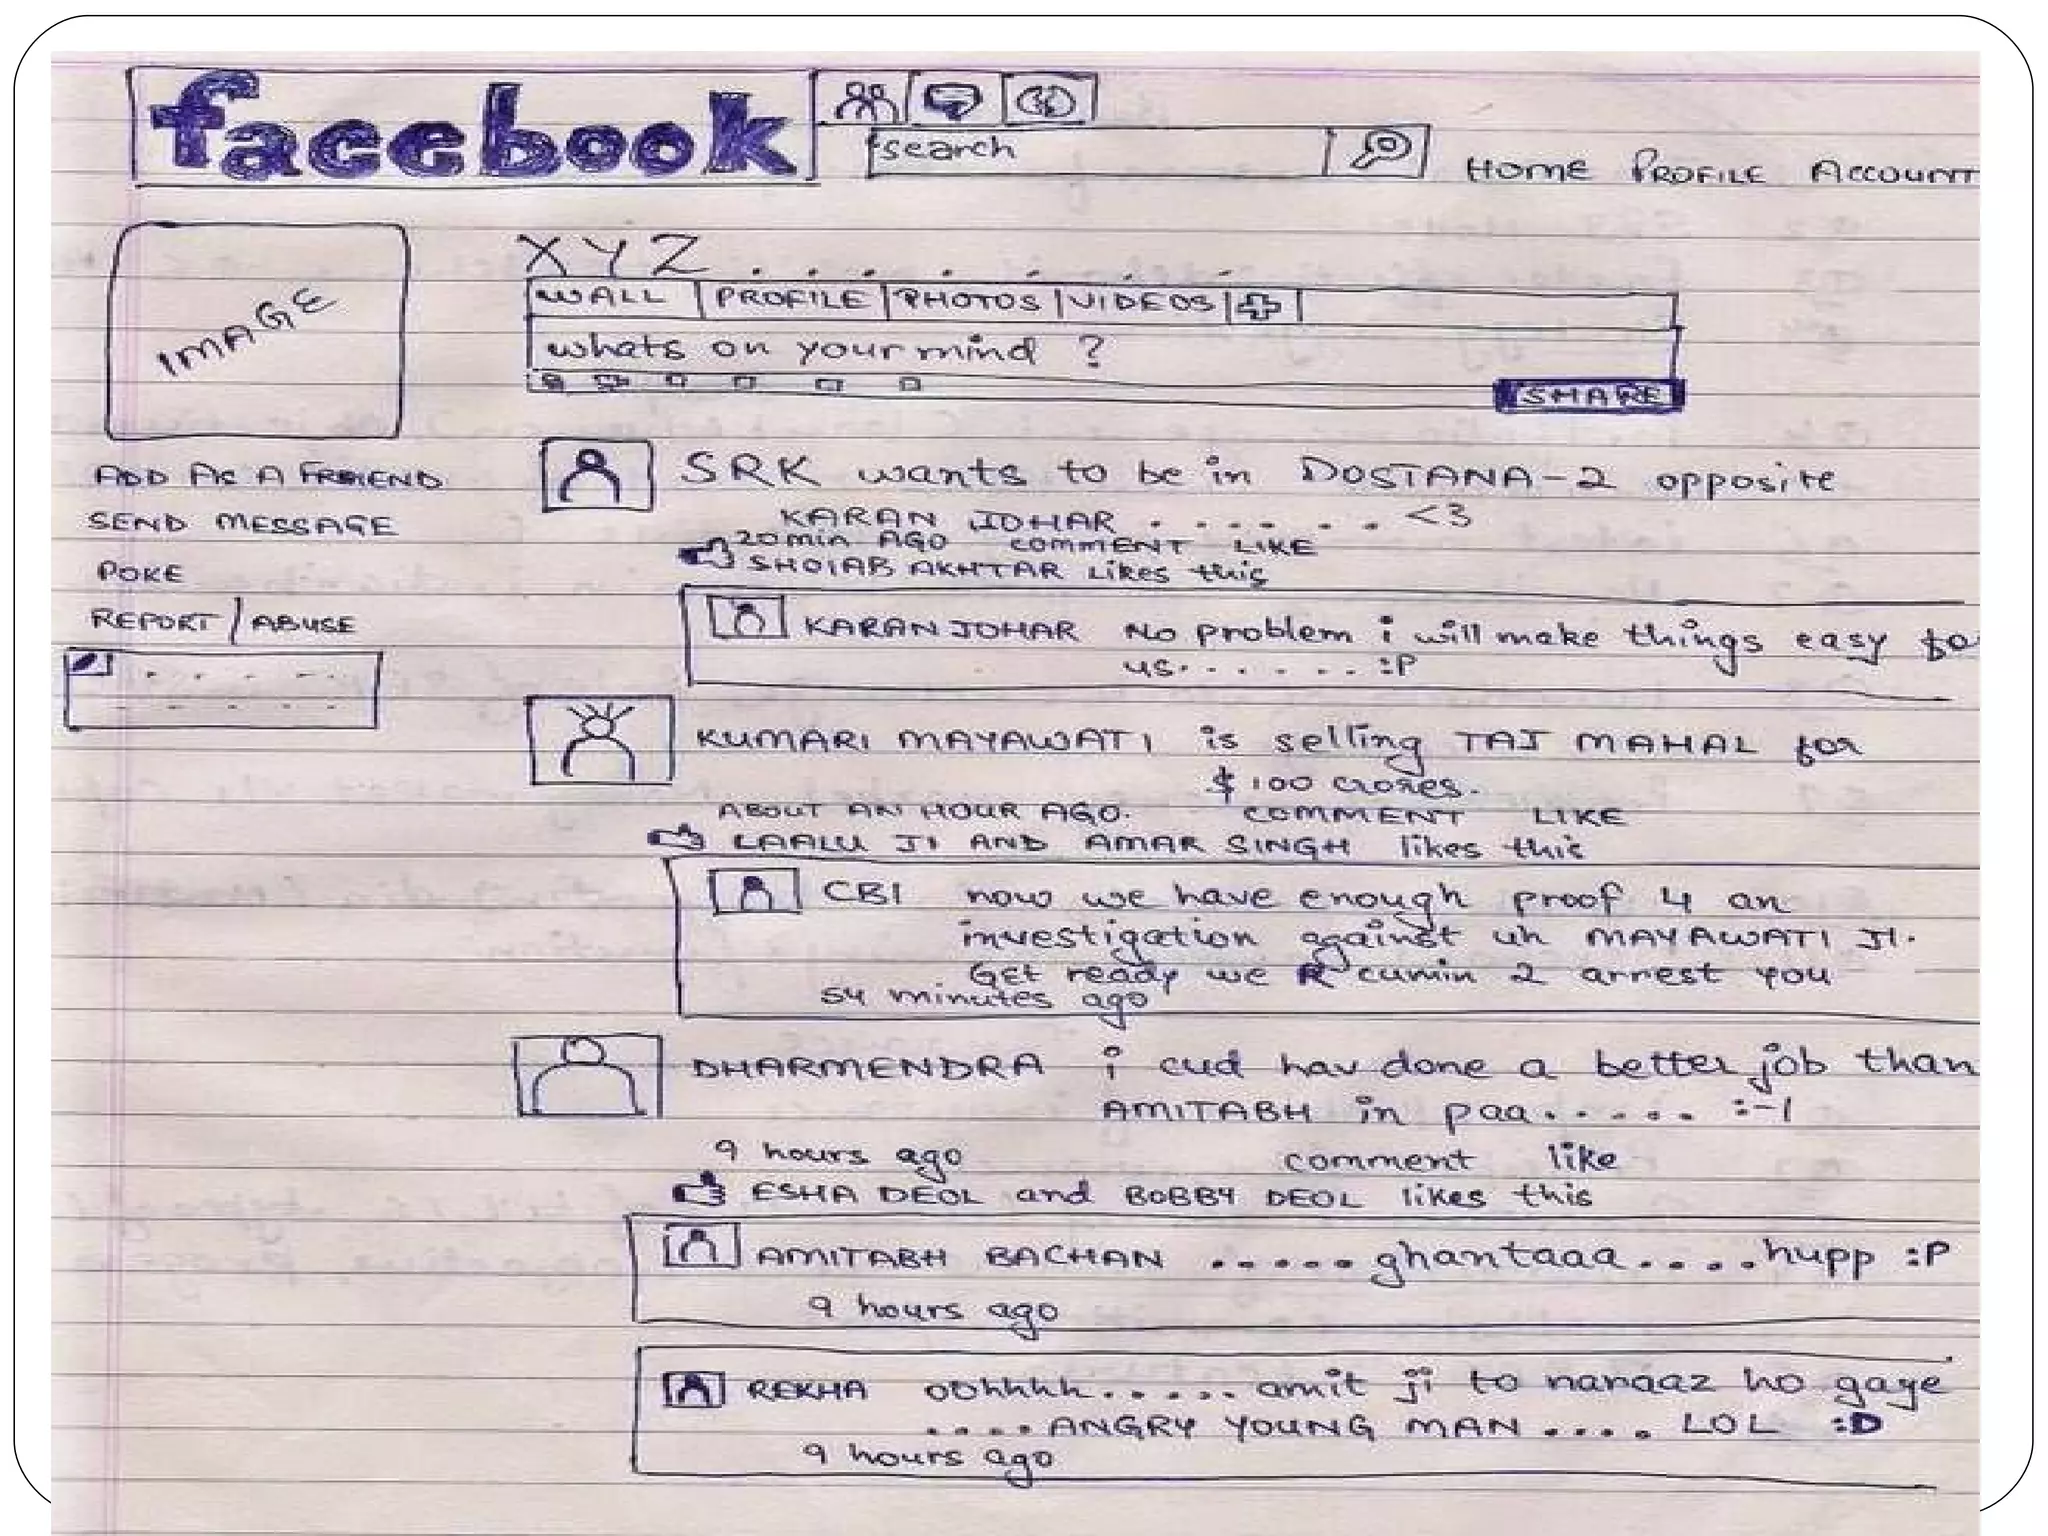 facebook
search
HOME PROFILE ACCOUNT
IMAGE
XYZ . . . . . . . .
WALL PROFILE PHOTOS VIDEOS
whats on your mind ?
SHARE
ADD AS A FRIEND
SEND MESSAGE
POKE
REPORT / ABUSE
SRK wants to be in DOSTANA-2 opposite
KARAN JOHAR . . . . . . <3
20 min AGO COMMENT LIKE
SHOIAB AKHTAR Likes this
KARAN JOHAR No problem i will make things easy fo
us. . . . . . :P
KUMARI MAYAWATI is selling TAJ MAHAL for
$ 100 crores.
ABOUT AN HOUR AGO. COMMENT LIKE
LAALU JI AND AMAR SINGH likes this
CBI now we have enough proof 4 an
investigation against uh MAYAWATI JI.
Get ready we R cumin 2 arrest you
54 minutes ago
DHARMENDRA i cud hav done a better job than
AMITABH in paa. . . . . :-|
9 hours ago comment like
ESHA DEOL and BOBBY DEOL likes this
AMITABH BACHAN .....ghantaaa....hupp :P
9 hours ago
REKHA oohhhh.....amit ji to naraaz ho gaye
....ANGRY YOUNG MAN .... LOL :D
9 hours ago